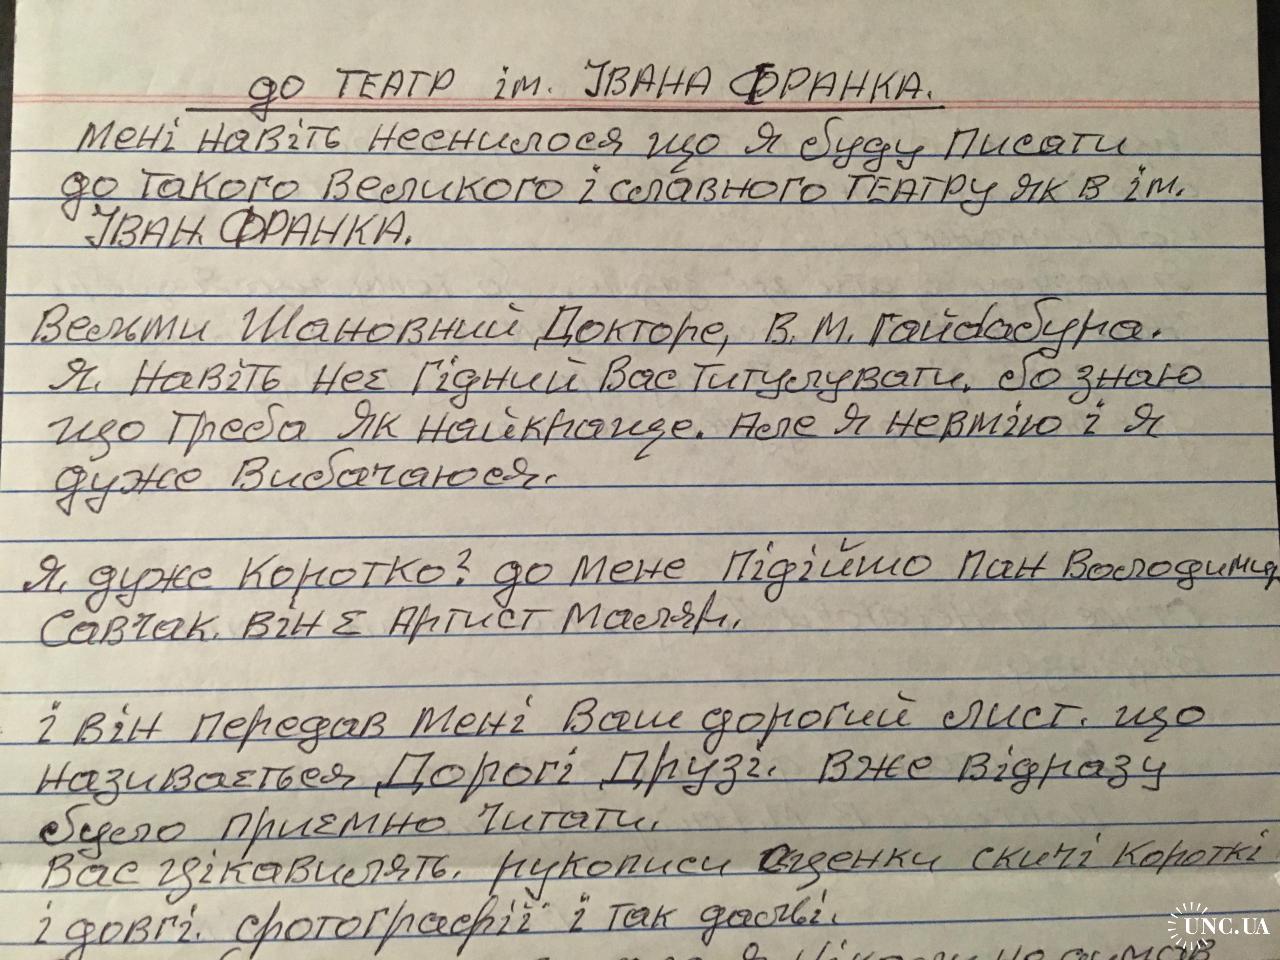 до ТЕАТР ім. ІВАНА ФРАНКА.
мені навіть неснилося що я буду Писати
до Такого Великого і славного ТЕАТРУ як в ім.
ІВАН. ФРАНКА.
Вельми Шановний Докторе, В.М. Гайдабура.
Я. навіть неє Гідний Вас Титулувати. бо знаю
що Треба як найкраще. Але я невмію і я
дуже Вибачаюся.
Я. дуже коротко? до мене підійшо пан Володимир
Савчак. він є Артист Маляр.
і він передав мені Ваш дорогий лист. що
називається Дорогі Друзі. вже відразу
було приємно читати.
Вас цікавилять. рукописи сценки скичі короткі
і довгі. фотографії і так далі.
я ніколи не думав
UNC.UA